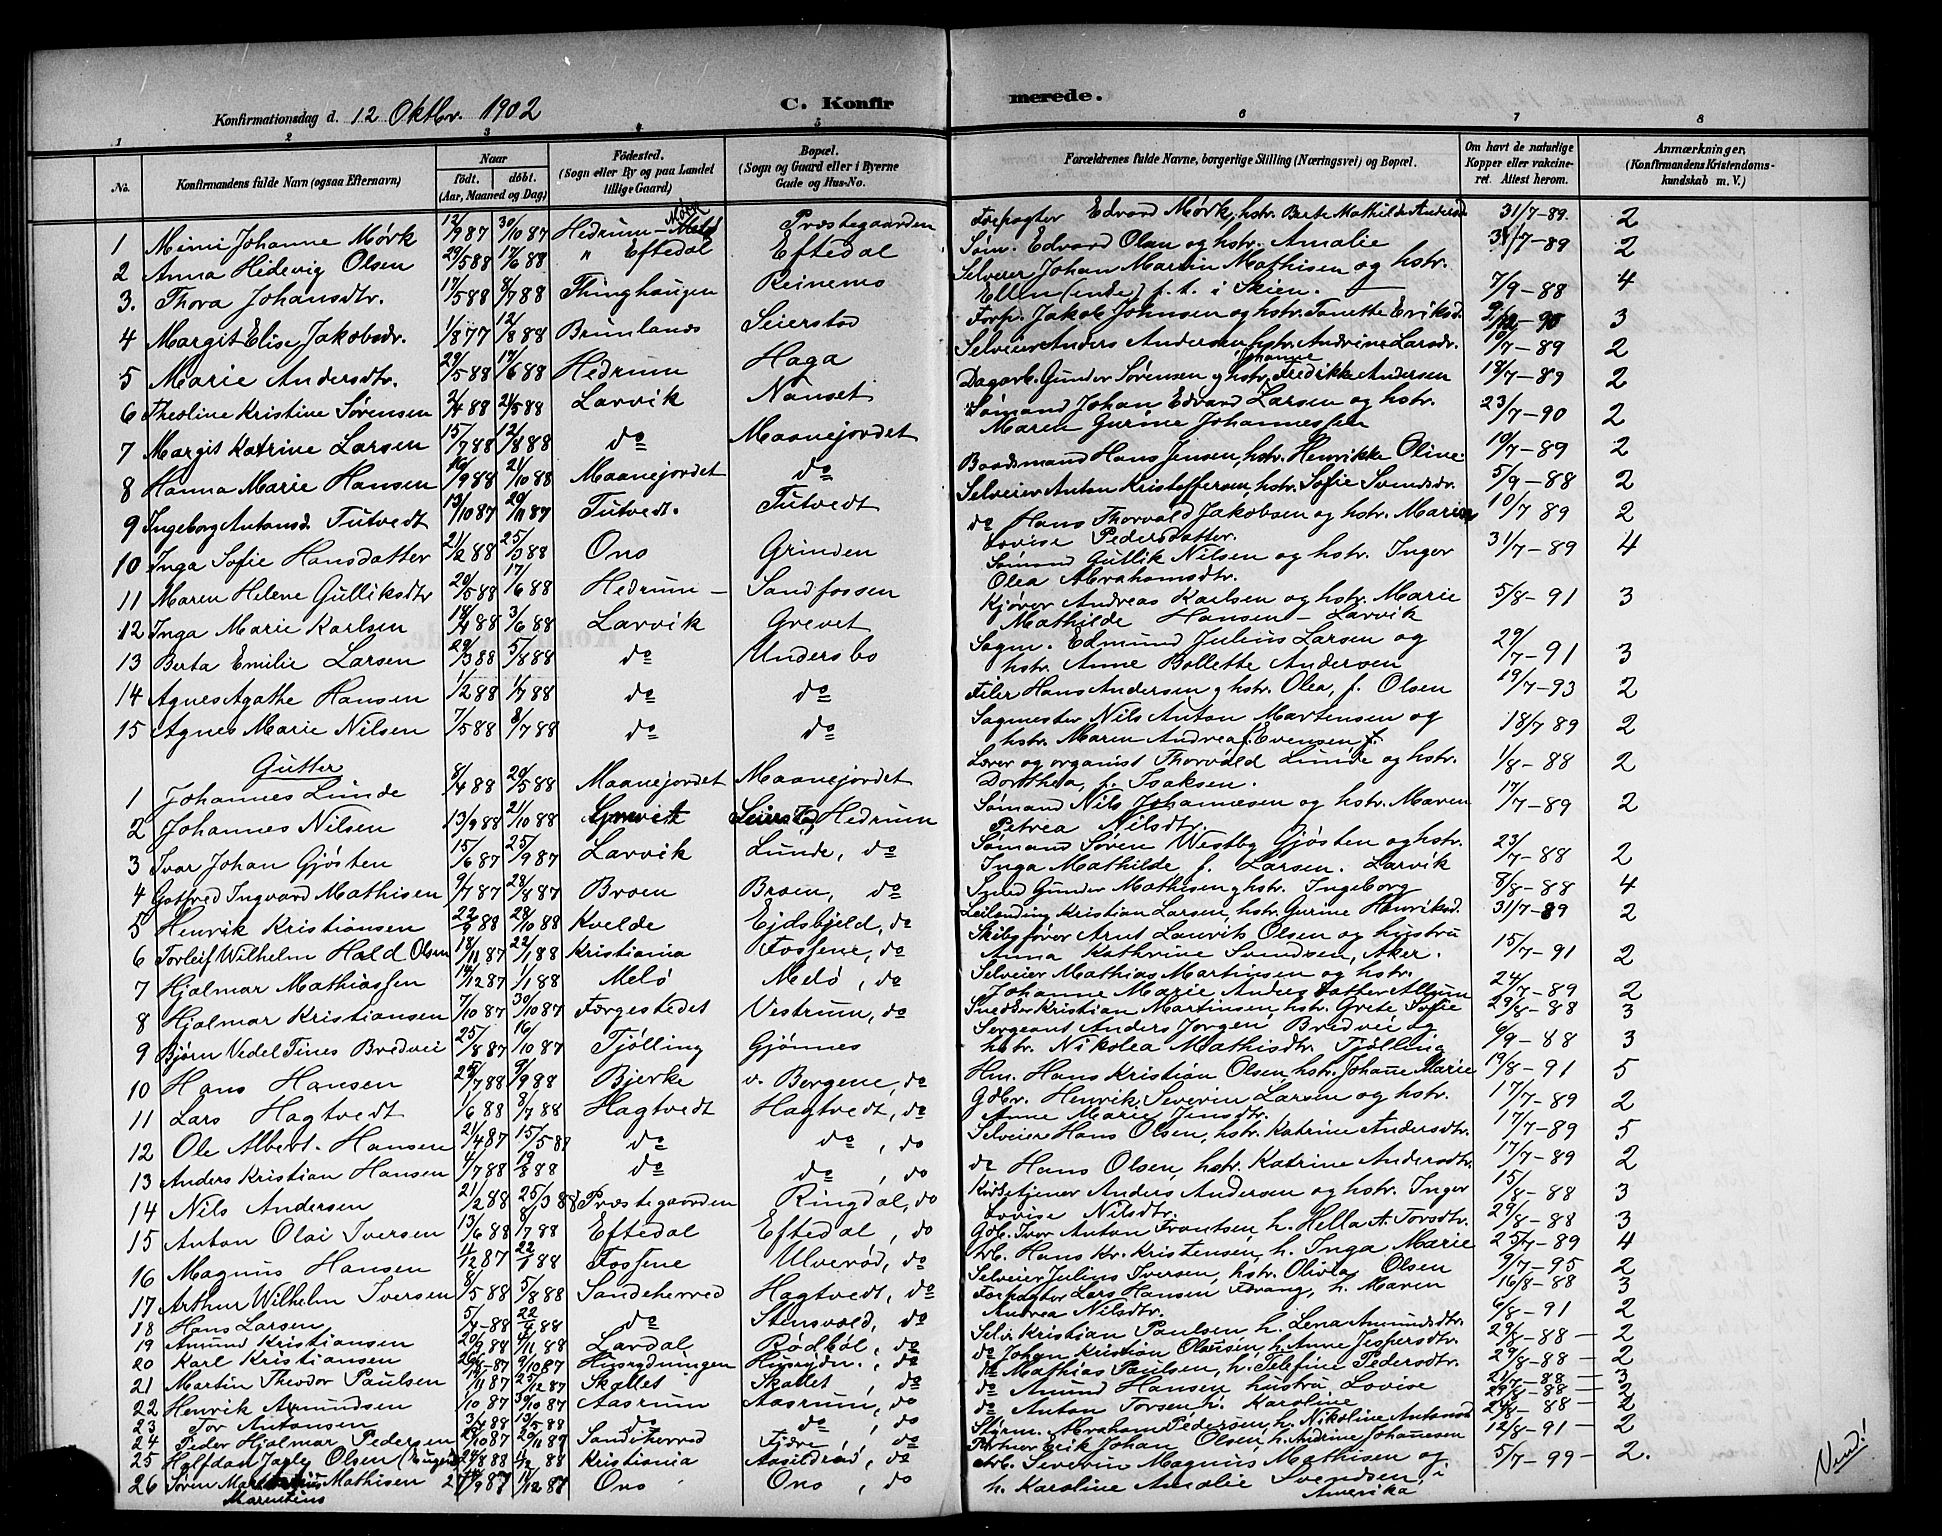 Konfirmationsdag d. 12 Oktbr. 1902
C. Konfir merede.
1 2 3 4 5 6 7 8
No. Konfirmandens fulde Navn (ogsaa Efternavn) Naar født. døbt. (Aar, Maaned og Dag) Fødested. (Sogn eller By og paa Landet tillige Gaard) Bopæl. (Sogn og Gaard eller i Byerne Gade og Hus-No. Forældrenes fulde Navne, borgerlige Stilling (Næringsvei) og Bopæl. Om havt de naturlige Kopper eller vakcineret. Attest herom. Anmærkninger, (Konfirmandens Kristendomskundskab m. V.)
1 Mimi Johanne Mørk 12/9 87 30/10 87 Hedrum - Præstegaarden Forpagter Edvard Mørk, hstr. Berte Mathilde 31/7-89. 2
2 Anna Hedevig Olsen 29/5 88 17/6 88 " Eftedal Eftedal Søm. Edvard Olsen og hstr. Amalie 31/7-89 2
3. Thora Johansdtr. 17/5 88 8/7 88 Thinghaugen Reinemo Selveier Johan Martin Mathisen og hstr. Ellen (enke) f. t. i Skien. 7/9-88 4
4 Margit Elise Jakobsdr. 12/8 88 Brunlanes Seierstad Forp. Jakob Johnsen og hstr. Tanette Eriksd. 3
5 Marie Andersdtr. 29/5 88 17/6 88 Hedrum Haga Selveier Anders Andersen hstr. Andrine Larsdr. 19/7-89 2
6 Theoline Kristine Sørensen 2/4 88 21/5 88 Larvik Nanset Dagarb. Gunder Sørensen og hstr. Johanne Fredrikke Andersen 18/7-89 2
7 Margit Katrine Larsen 15/7 88 12/8 88 do Maanejordet Sømand Johan Edvard Larsen og hstr. Maren Gurine Johannessen 23/7-90 2
8 Hanna Marie Hansen 16/9 88 21/10 88 Maanejordet do Baadsmand Hans Jensen, hstr. Henrikke Oline 19/7-89 2
9 Ingeborg Antonsd. Tutvedt 13/10 87 29/11 87 Tutvedt. Tutvedt Selveier Anton Kristoffersen, hstr. Sofie Svendsdr. 5/9-88 2
10 Inga Sofie Hansdatter 21/2 88 25/3 88 Ono Grinden do Hans Thorvald Jakobsen og hstr. Maren Lovise Pedersdatter. 10/7 89 2
11 Maren Helene Gulliksdtr 20/5 88 17/6 88 Hedrum - Sandfossen Sømand Gullik Nilsen og hstr. Inger Olea Abrahamsdtr. 31/7-89 4
12 Inga Marie Karlsen 18/4 88 3/6 88 Larvik Grevet Kjører Andreas Karlsen og hstr. Marie Mathilde Hansen - Larvik 5/8-91 3
13 Berta Emilie Larsen 29/3 88 5/8 88 do Undersbo Sagm. Edmund Julius Larsen og hstr. Anne Bollette Andersen 29/7-91 3
14 Agnes Agathe Hansen 1/2 88 1/7 88 do do Filer Hans Andersen og hstr. Olea, f. Olsen 19/7-93 2
15 Agnes Marie Nilsen 7/5 88 8/7 88 do do Sagmester Nils Anton Martensen og hstr. Maren Andrea f. Evensen 18/7 89 2
Gutter
1 Johannes Lunde 8/4 88 20/5 88 Maanejordet Maanejordet Lærer og organist Thorvald Lunde og hstr. Dorthea, f. Isaksen. 1/8-88 2
2 Johannes Nilsen 13/9 88 21/10 88 Larvik Seierstad, Hedrum Sømand Nils Johannesen og hstr. Maren Petrea Nilsdtr. 17/7-89 2
3 Ivar Johan Gjøsten 15/6 87 25/9 87 Larvik Lunde, do Sømand Søren Westby Gjøsten og hstr. Inga Mathilde f. Larsen. Larvik 23/7-88 2
4 Gotfred Ingvard Mathisen 9/7 87 28/8 87 Broen Broen, do Smed Gunder Mathisen og hstr. Ingeborg 8/8-88 4
5 Henrik Kristiansen 28/10 88 Kvelde Ejdsfjeld, do Leilending Kristian Larsen, hstr. Gurine Henriksd. 31/7-89 2
6 Torleif Wilhelm Hald Olsen 18/11 87 22/1 88 Kristiania Fossene, do Skibsfører Arnt Laurits Olsen og hustru Anna Kathrine Svendsen, Aker. 15/7-91 2
7 Hjalmar Mathiassen 14/12 87 1/1 88 Melø Melø, do Selveier Mathias Martinsen og hstr. Johanne Marie Andersdatter 24/7-89 2
8 Hjalmar Kristiansen 7/10 87 30/10 87 Førgestedet Vestrum, do Snedker Kristian Martinsen, hstr. Grete Sofie 29/8-88 3
9 Bjørn Vedel Tines Bredvei 25/8 87 16/10 87 Tjølling Gjønnes Sergeant Anders Jørgen Bredvei og hstr. Nikolea Mathisdtr. Tjølling 6/9-88 3
10 Hans Hansen 25/7 88 9/9 88 Bjerke v. Bergene, do Hm. Hans Kristian Olsen, hstr. Johanne Marie 19/8-91 5
11 Lars Hagtvedt 1/6 88 8/7 88 Hagtvedt Hagtvedt, do Gbr. Henrik Severin Larsen og hstr. Anne Marie Jensdtr. 17/7-89 2
12 Ole Albert Hansen 21/4 87 15/5 87 do do, do Selveier Hans Olsen, hstr. Katrine Andersdtr. 17/7-89 5
13 Anders Kristian Hansen 4/7 88 19/8 88 do do, do do Hans Olsen, hstr. Katrine Andersdtr. 17/7-89 2
14 Nils Andersen 21/2 88 25/3 88 Præstegaarden Ringdal, do Kirketjener Anders Andersen og hstr. Inger Lovise Nilsdtr. 15/8-88 3
15 Anton Olai Iversen 13/6 88 8/7 88 Eftedal Eftedal, do Gb. Iver Anton Frantsen, h. Hella A. Torsdtr. 29/8-88 3
16 Magnus Hansen 4/12 87 22/1 88 Fossene Ulverød, do Arb. Hans Kr. Kristensen, h. Inga Marie 25/7-89 4
17 Arthur Wilhelm Iversen 8/5 88 5/8 88 Sandeherred Hagtvedt, do Selveier Julius Iversen, hstr. Olivia Olsen 9/7-95 2
18 Hans Larsen 5/7-88 do Stensvold, do Forpagter Lars Hansen Tvang, h. Maren Andrea Nilsdtr. 16/8-88 3
19 Amund Kristiansen 4/11 88 Lardal Rødbøl, do Selv. Kristian Paulsen, h. Lena Amundsdtr. 6/8-91 2
20 Karl Kristiansen 26/8-87 9/10 87 Husrydningen Husrydn., do do Johan Kristian Olausen, h. Anne Jespersdtr. 29/8-88 - 2
21 Martin Theodor Paulsen 25/12 87 Skallet Skallet, do do Mathias Paulsen, h. Telefine Pedersdtr. 29/8-88 - 2
22 Henrik Amundsen 1/10 87 30/10 87 Aasrum Aasrum, do do Amund Hansen, hustru Lovise 21/7-88 - 3
23 Tor Antonsen 3/4 88 13/5 88 do do, do do Anton Torsen h. Karoline 29/8-88 - 2
24 Peder Hjalmar Pedersen Sandeherred Fjære, do Styrm. Abraham Pedersen, h. Nikoline Antonsd 24/8-88 - 2
25 Halfdan Jarle Olsen (Eugen) Kristiania Aasildrød, do Partner Erik Johan Olsen, h. Andrine Johannesen 12/8-91 - 2
26 Søren Mathisen Marentius Ono Ono, do Arb. Severin Magnus Mathisen og h. Karoline Amalie Svendsen, i Amerika 5/7-99 - 2.
Vend!